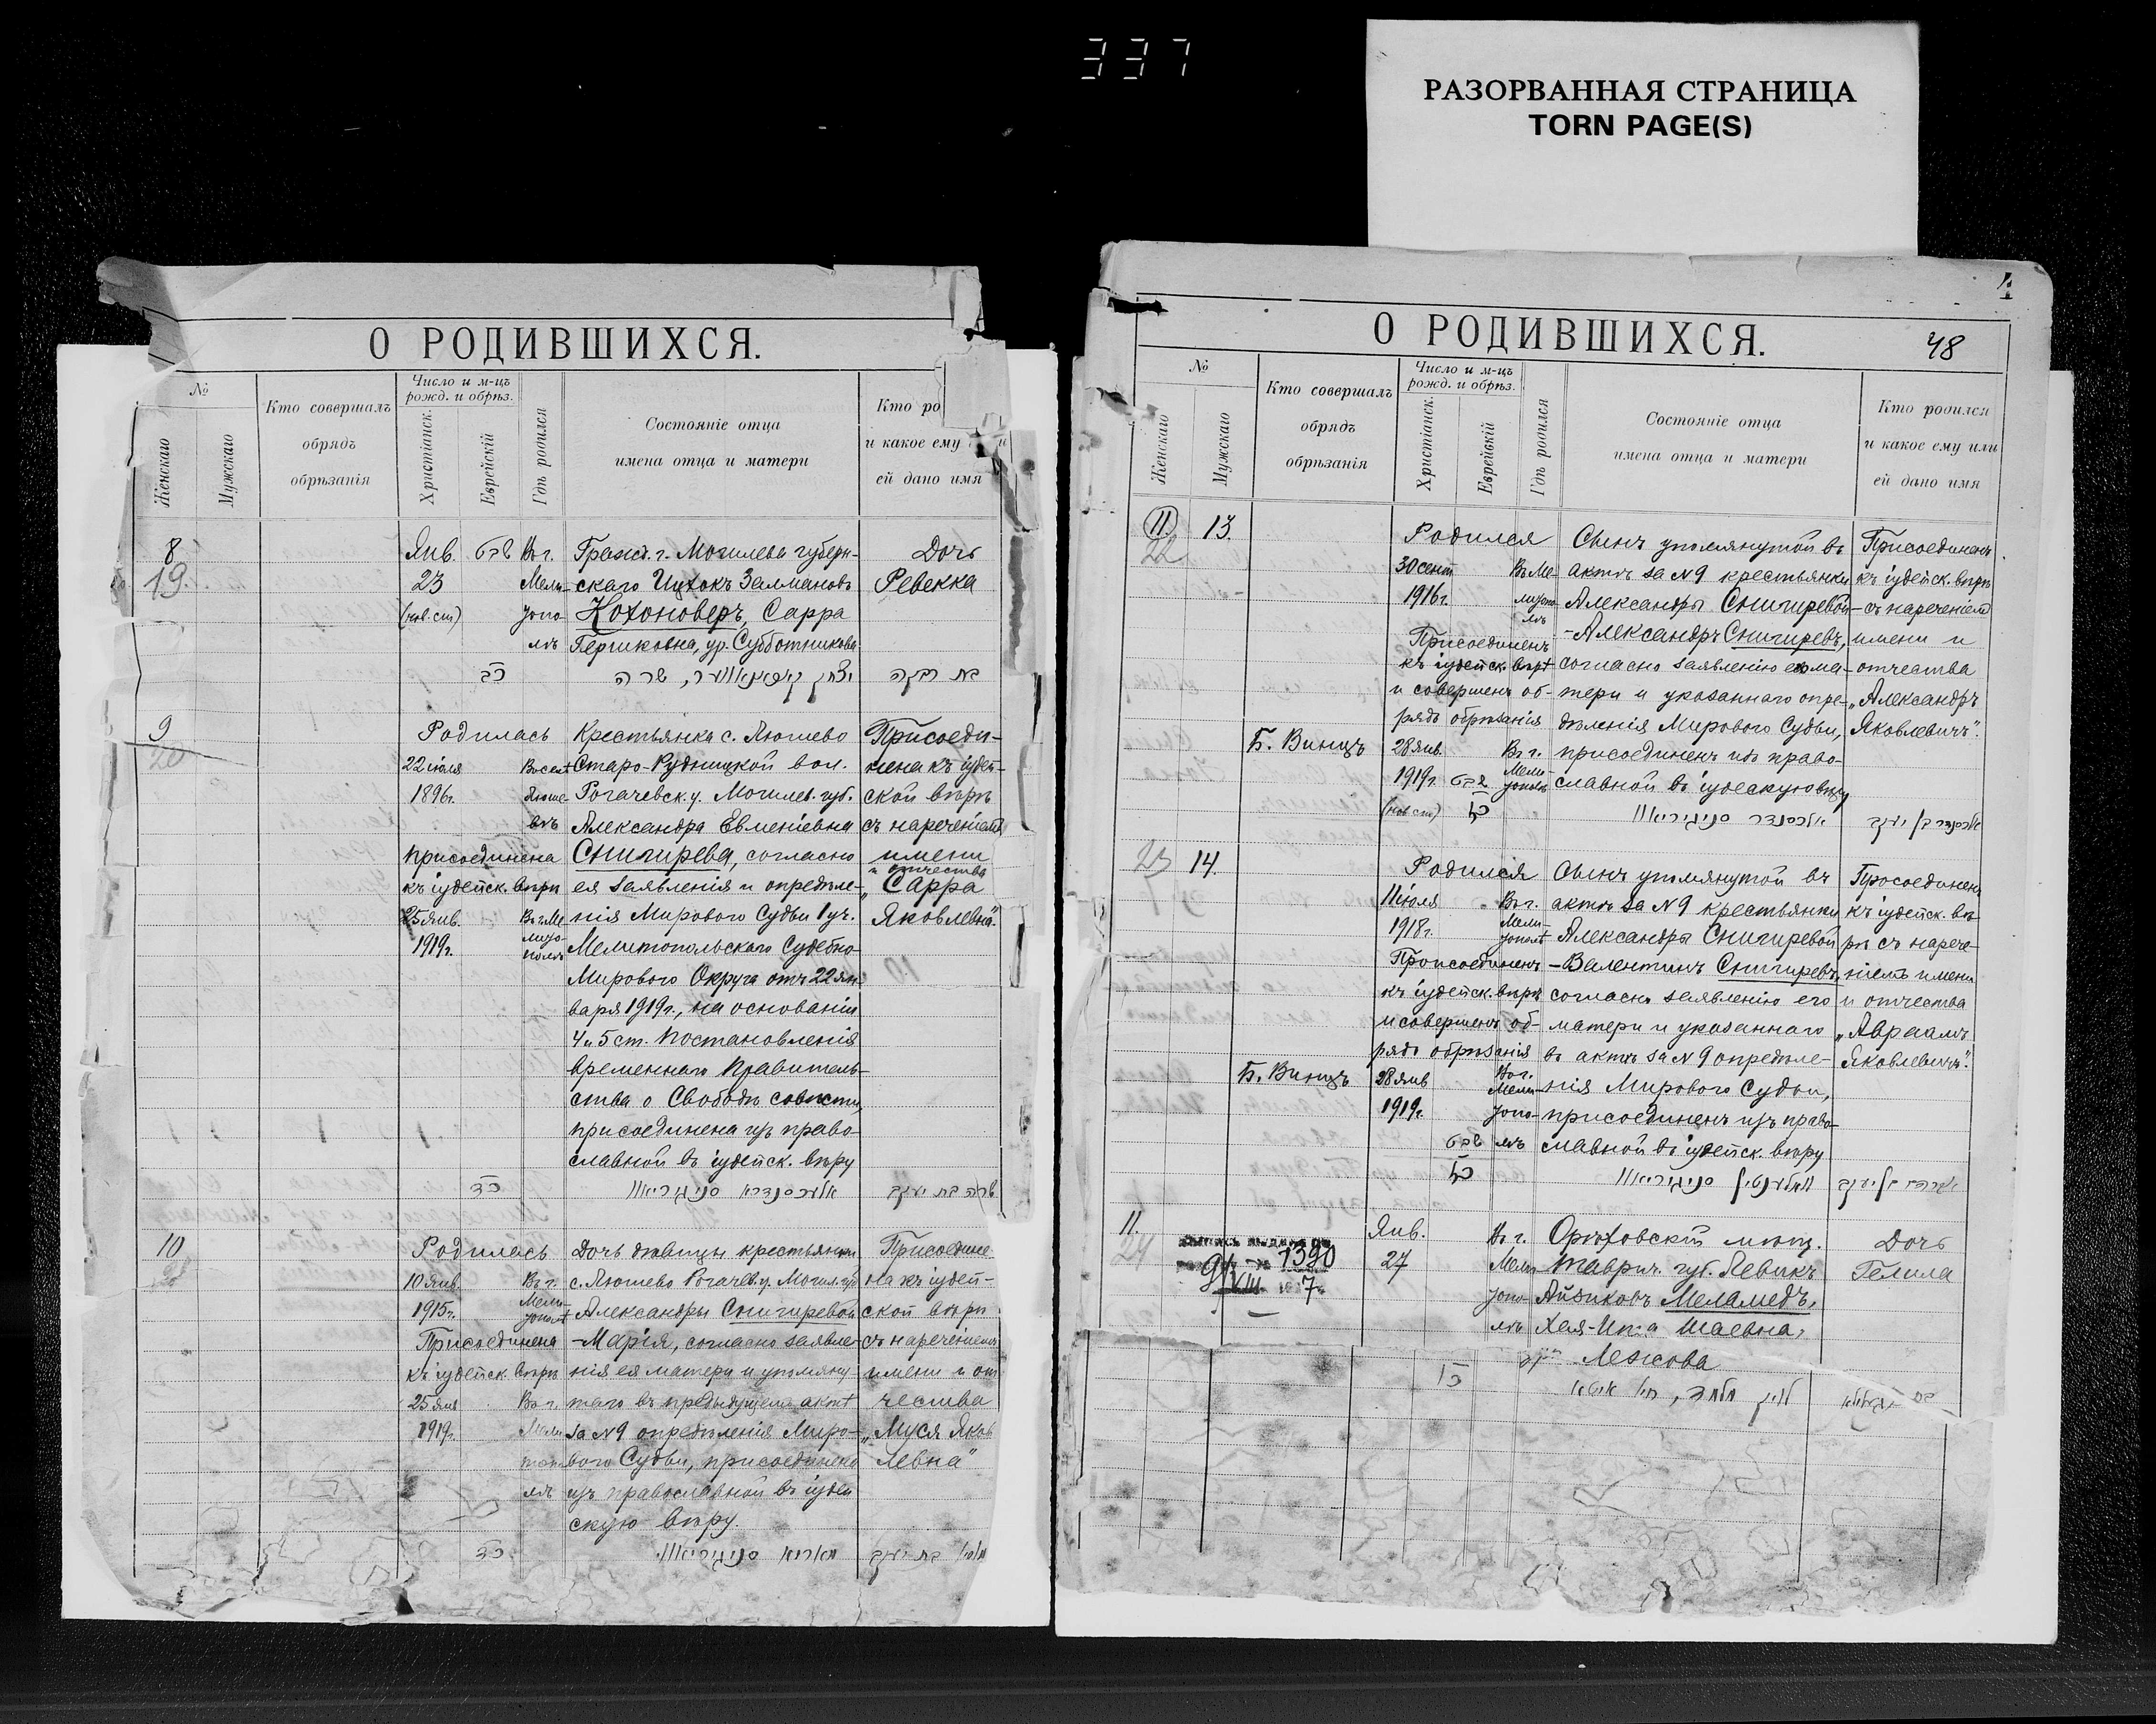 337
РАЗОРВАННАЯ СТРАНИЦА
TORN PAGE(S)
О РОДИВШИХСЯ.
№
Женскаго
Мужскаго
Кто совершалъ
обрядъ
обрѣзанія
Число и м-цъ
рожд. и обрѣз.
Христіанск.
Еврейскій
Гдѣ родился
Состояніе отца
имена отца и матери
Кто ро
и какое ему
ей дано имя
8
19.
Янв.
23
(нов. ст)
שבט
כב
Въ г.
Мели-
топо-
лѣ
Гражд. г. Могилева губерн-
скаго Ицхокъ Залмановъ
Кохоноверъ, Сарра
Гершковна, ур. Субботникова
Дочь
Ревекка
בת רבקה
9
20
Родилась
22 іюля
1896г.
Въ селѣ
Люше-
вѣ
присоединена
къ іудейск. вѣрѣ
25 янв.
1919г.
Въ г. Ме
лито-
полѣ
Крестьянка с. Люшево
Старо-Рудницкой вол.
Рогачевск. у. Могилев. губ.
Александра Евменіевна
Снигирева, согласно
ея заявленія и опредѣле-
нія Мирового Судьи 1 уч.
Мелитопольскаго Судебно-
Мирового Округа отъ 22 ян-
варя 1919г., на основаніи
4 и 5 ст. Постановленія
временнаго Правитель-
ства о Свободѣ совѣсти,
присоединена изъ право-
славной въ іудейск. вѣру
Присоеди-
нена къ іудей-
ской вѣрѣ
съ нареченіемъ
имени
и отчества
„Сарра
Яковлевна".
שרה בת יעקב
10
Родилась
10 янв.
1915г.
Въ г.
Мели-
тополѣ
Присоединена
къ іудейск. вѣрѣ
25 янв
1919г.
Въ г.
Мели
топо
лѣ
Дочь дѣвицы крестьянки
с. Люшево Рогачев. у. Могил. губ
Александры Снигиревой
-Марія, согласно заявле-
нія ея матери и упомяну
таго въ предыдущемъ актѣ
за N9 опредѣленія Миро-
вого Судьи, присоединена
изъ православной въ іудей
скую вѣру.
Присоедине-
на къ іудей-
ской вѣрѣ
съ нареченіемъ
имени и от
чества
„Муся Яков
левна"
О РОДИВШИХСЯ.
48
№
Женскаго
Мужскаго
Кто совершалъ
обрядъ
обрѣзанія
Число и м-цъ
рожд. и обрѣз.
Христіанск.
Еврейскій
Гдѣ родился
Состояніе отца
имена отца и матери
Кто родился
и какое ему или
ей дано имя
11.
22
13.
Родился
30 сент
1916г.
Въ Ме
лито
лѣ
Присоединенъ
къ іудейск. вѣрѣ
и совершенъ об-
рядъ обрѣзанія
Б. Винцъ
28 янв.
1919г.
(нов ст)
שבט
Въ г.
Мели-
тополѣ
Сынъ упомянутой въ
актѣ за N9 крестьянки
Александры Снигиревой
-Александръ Снигиревъ,
согласно заявленію его ма-
тери и указаннаго опре-
дѣленія Мирового Судьи,
присоединенъ изъ право-
славной въ іудейскую вѣру
Присоединенъ
къ іудейск. вѣрѣ
- съ нареченіемъ
имени и
отчества
„Александръ
Яковлевичъ".
23
14.
Родился
1 Іюля
1918г.
Въ г.
Мели-
тополѣ
Присоединенъ
къ іудейск. вѣрѣ
и совершенъ об-
рядъ обрѣзанія
Б. Винцъ
28 янв
1919г.
שבט
Въ г.
Мели-
топо-
лѣ
Сынъ упомянутой въ
актѣ за N9 крестьянки
Александры Снигиревой
-Валентинъ Снигиревъ,
согласно заявленію его
матери и указаннаго
въ актѣ за N9 опредѣле-
нія Мирового Судьи,
присоединенъ изъ право-
славной въ іудейск. вѣру
Присоединенъ
къ іудейск. вѣ-
рѣ съ нарече-
ніемъ имени
и отчества
„Авраамъ
Яковлевичъ".
11.
24
1390
9/VIII
7
Янв.
27
Въ г.
Мели
топо-
лѣ
Орѣховскій мѣщ.
Таврич. губ. Левикъ
Айзиковъ Меламедъ,
Хая-Ита Шаевна,
ур. Лежова
Дочь
Гелила